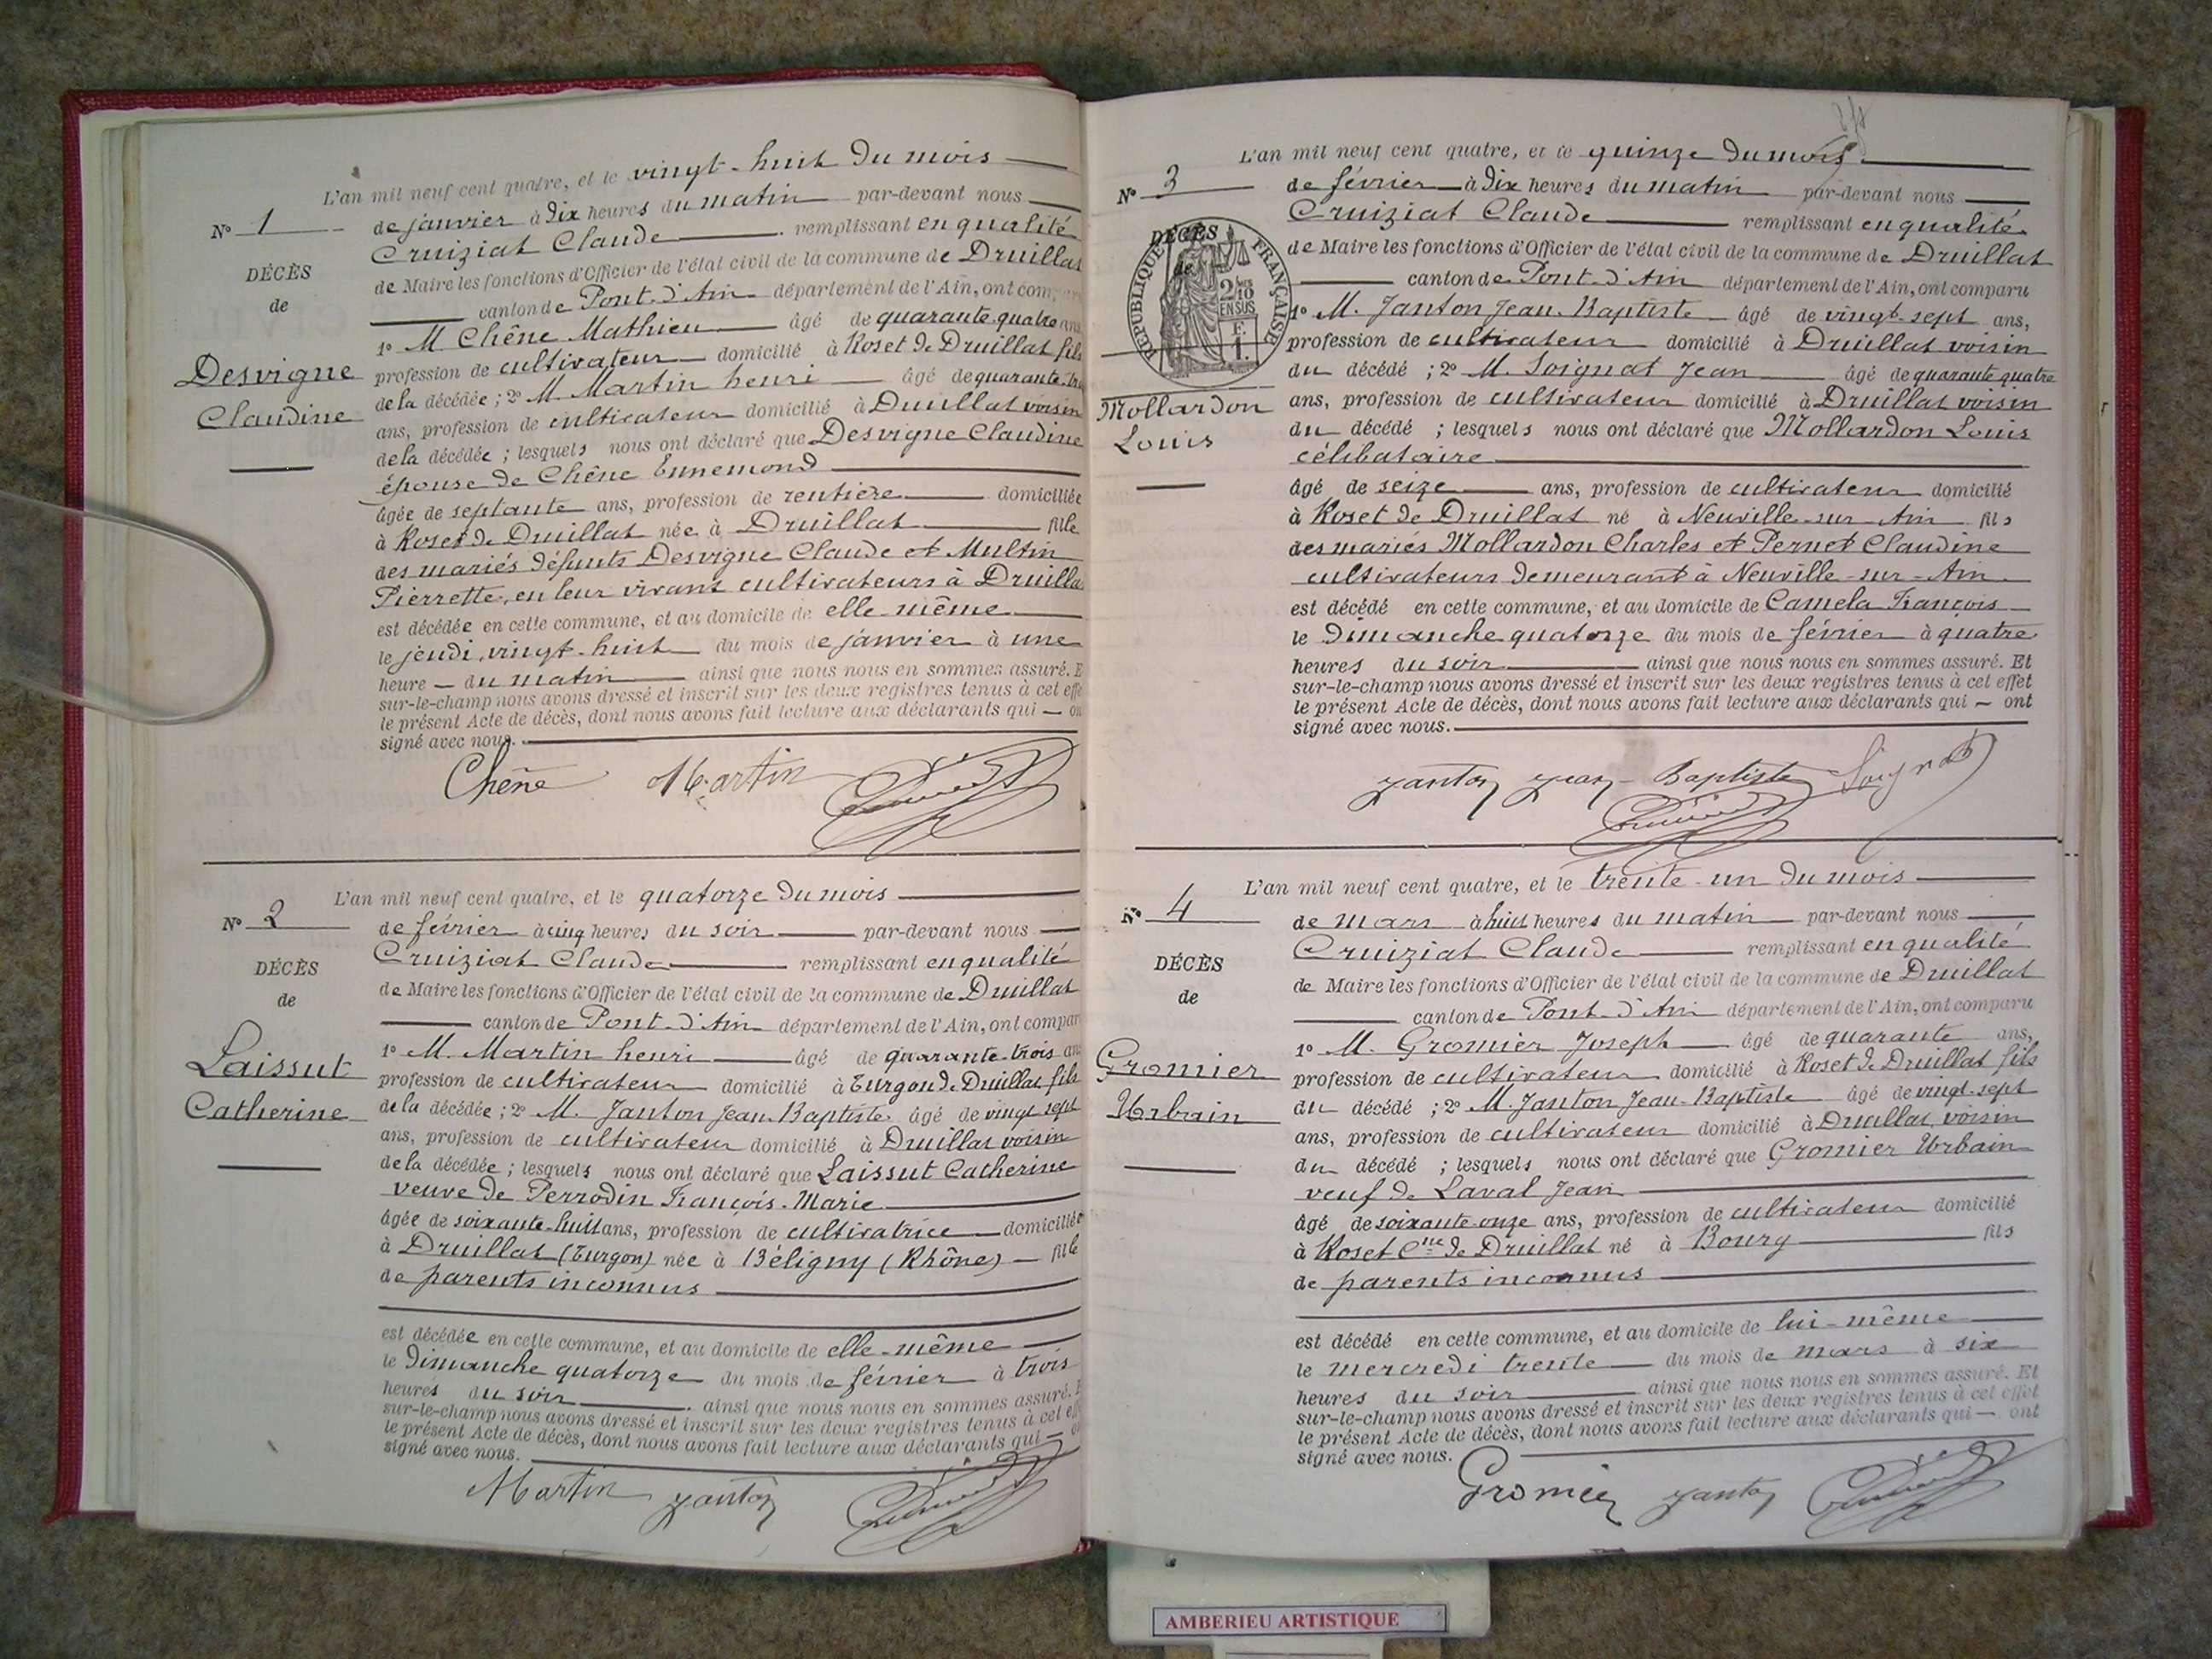 L'an mil neuf cent quatre, et le vingt-huit du mois
N° 1
de janvier à dix heures du matin par-devant nous
Cruiziat Claude remplissant en qualité
DÉCÈS
de Maire les fonctions d'Officier de l'état civil de la commune de Druillat
de
canton de Pont-d'Ain département de l'Ain, ont com
1° M. Chêne Mathieu âgé de quarante-quatre ans
Desvigne
profession de cultivateur domicilié à Roset de Druillat fils
Claudine
de la décédée ; 2° M. Martin henri âgé de quarante
ans, profession de cultivateur domicilié à Druillat voisin
de la décédée ; lesquels nous ont déclaré que Desvigne Claudine
épouse de Chêne Ennemond
âgée de septante ans, profession de rentière domiciliée
à Roset de Druillat née à Druillat fille
des mariés défunts Desvigne Claude et Multin
Pierrette, en leur vivant cultivateurs à Druilla
est décédée en cette commune, et au domicile de elle-même
le jeudi, vingt-huit du mois de janvier à une
heure du matin ainsi que nous nous en sommes assuré. E
sur-le-champ nous avons dressé et inscrit sur les deux registres tenus à cet effe
le présent Acte de décès, dont nous avons fait lecture aux déclarants qui on
signé avec nous.
Chêne Martin
L'an mil neuf cent quatre, et le quatorze du mois
N° 2
de février à cinq heures du soir par-devant nous
Cruiziat Claude remplissant en qualité
DÉCÈS
de Maire les fonctions d'Officier de l'état civil de la commune de Druillat
de
canton de Pont-d'Ain département de l'Ain, ont compar
1° M. Martin henri âgé de quarante-trois an
Laissut
profession de cultivateur domicilié à Turgon de Druillat fils
Catherine
de la décédée ; 2° M. Janton Jean-Baptiste âgé de vingt sept
ans, profession de cultivateur domicilié à Druillat voisin
de la décédée ; lesquels nous ont déclaré que Laissut Catherine
veuve de Perrodin François-Marie
âgée de soixante-huit ans, profession de cultivatrice domiciliée
à Druillat (Turgon) née à Béligny (Rhône) fille
de parents inconnus
est décédée en cette commune, et au domicile de elle-même
le dimanche quatorze du mois de février à trois
heures du soir ainsi que nous nous en sommes assuré. E
sur-le-champ nous avons dressé et inscrit sur les deux registres tenus à cet eff
le présent Acte de décès, dont nous avons fait lecture aux déclarants qui
signé avec nous.
Martin Janton
L'an mil neuf cent quatre, et le quinze du mois
N° 3
de février à dix heures du matin par-devant nous
Cruiziat Claude remplissant en qualité
DÉCÈS
de
RÉPUBLIQUE FRANÇAISE
2/10 EN SUS
F. 1.
de Maire les fonctions d'Officier de l'état civil de la commune de Druillat
canton de Pont-d'Ain département de l'Ain, ont comparu
1° M. Janton Jean-Baptiste âgé de vingt-sept ans,
profession de cultivateur domicilié à Druillat voisin
du décédé ; 2° M. Soignat Jean âgé de quarante quatre
Mollardon
ans, profession de cultivateur domicilié à Druillat voisin
Louis
du décédé ; lesquels nous ont déclaré que Mollardon Louis
célibataire
âgé de seize ans, profession de cultivateur domicilié
à Roset de Druillat né à Neuville-sur-Ain fils
des mariés Mollardon Charles et Pernet Claudine
cultivateurs demeurant à Neuville-sur-Ain
est décédé en cette commune, et au domicile de Camela François
le Dimanche quatorze du mois de février à quatre
heures du soir ainsi que nous nous en sommes assuré. Et
sur-le-champ nous avons dressé et inscrit sur les deux registres tenus à cet effet
le présent Acte de décès, dont nous avons fait lecture aux déclarants qui ont
signé avec nous.
Janton Jean-Baptiste Soignat
L'an mil neuf cent quatre, et le trente-un du mois
N° 4
de mars à huit heures du matin par-devant nous
Cruiziat Claude remplissant en qualité
DÉCÈS
de Maire les fonctions d'Officier de l'état civil de la commune de Druillat
de
canton de Pont-d'Ain département de l'Ain, ont comparu
1° M. Gromier Joseph âgé de quarante ans,
Gromier
profession de cultivateur domicilié à Roset de Druillat fils
Urbain
du décédé ; 2° M. Janton Jean-Baptiste âgé de vingt-sept
ans, profession de cultivateur domicilié à Druillat, voisin
du décédé ; lesquels nous ont déclaré que Gromier Urbain
veuf de Laval Jean
âgé de soixante-onze ans, profession de cultivateur domicilié
à Roset Cne de Druillat né à Bourg fils
de parents inconnus
est décédé en cette commune, et au domicile de lui-même
le mercredi trente du mois de mars à six
heures du soir ainsi que nous nous en sommes assuré. Et
sur-le-champ nous avons dressé et inscrit sur les deux registres tenus à cet effet
le présent Acte de décès, dont nous avons fait lecture aux déclarants qui ont
signé avec nous.
Gromier Janton
AMBERIEU ARTISTIQUE